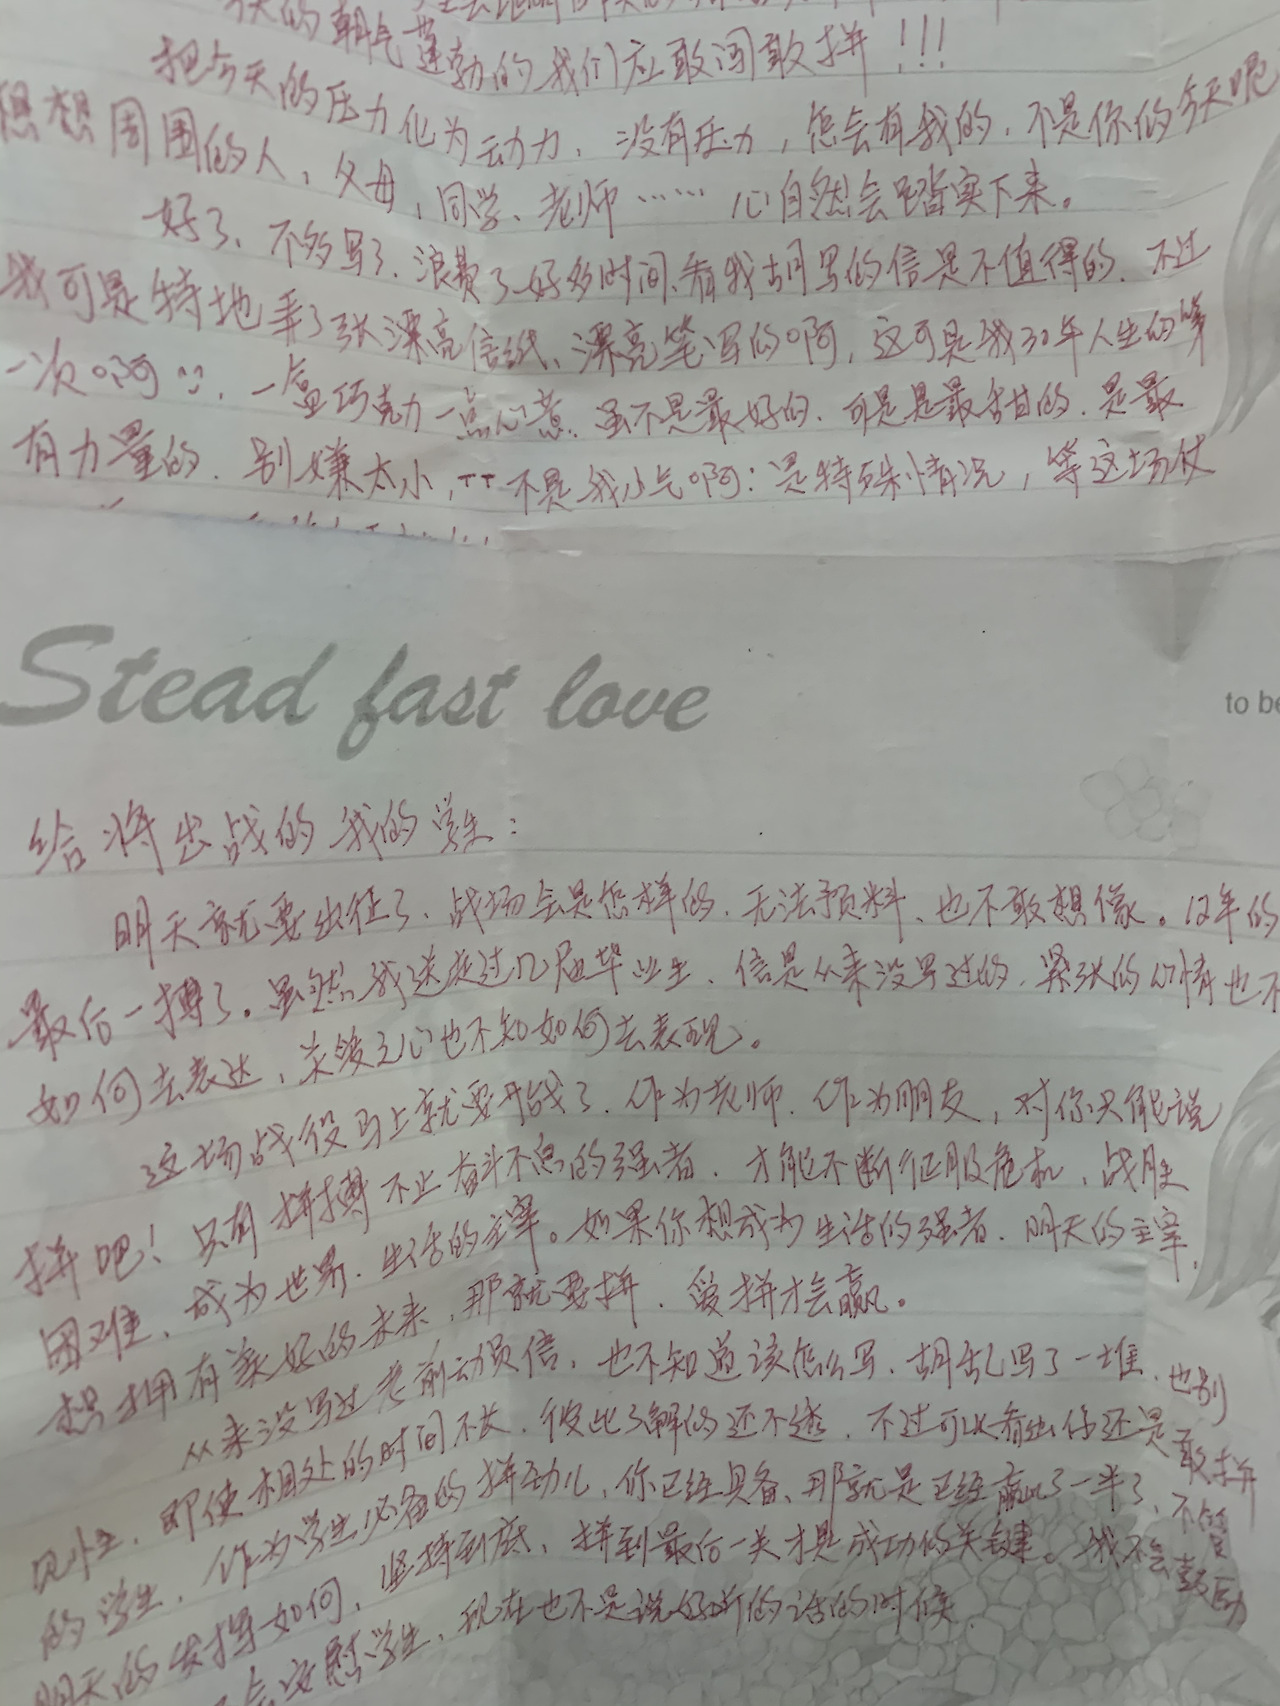 今天的朝气蓬勃的我们应敢闯敢拼!!!
把今天的压力化为动力、没有压力,怎会有我的、不是你的今天呢
想想周围的人,父母,同学、老师……心自然会踏实下来。
好了、不多写了、浪费了好多时间、看我胡写的信是不值得的、不过
我可是特地弄了张漂亮信纸、漂亮笔写的啊,这可是我30年人生的第
一次啊 一盒巧克力一点心意、虽不是最好的、可是是最甜的、是最
有力量的、别嫌太小,TT不是我小气啊:是特殊情况,等这场仗
Stead fast love
to be
给将出战的我的学生:
明天就要出征了、战场会是怎样的、无法预料、也不敢想像。12年的
最后一搏了。虽然我送走过几届毕业生、信是从来没写过的、紧张的心情也不
如何去表达,关爱之心也不知如何去表现。
这场战役马上就要开战了、作为老师、作为朋友,对你只能说
拼吧!只有拼搏不止奋斗不息的强者、才能不断征服危机、战胜
困难、成为世界、生活的主宰。如果你想成为生活的强者、明天的主宰,
想拥有美好的未来,那就要拼、爱拼才会赢。
从来没写过考前动员信,也不知道该怎么写、胡乱写了一堆、也别
见怪、即使相处的时间不长、彼此了解的还不透、不过可以看出你还是敢拼
的学生、作为学生必备的拼劲儿,你已经具备、那就是已经赢了一半了、不管
明天的发挥如何,坚持到底、拼到最后一关才是成功的关键。我不会鼓励
会安慰学生、现在也不是说好听的话的时候